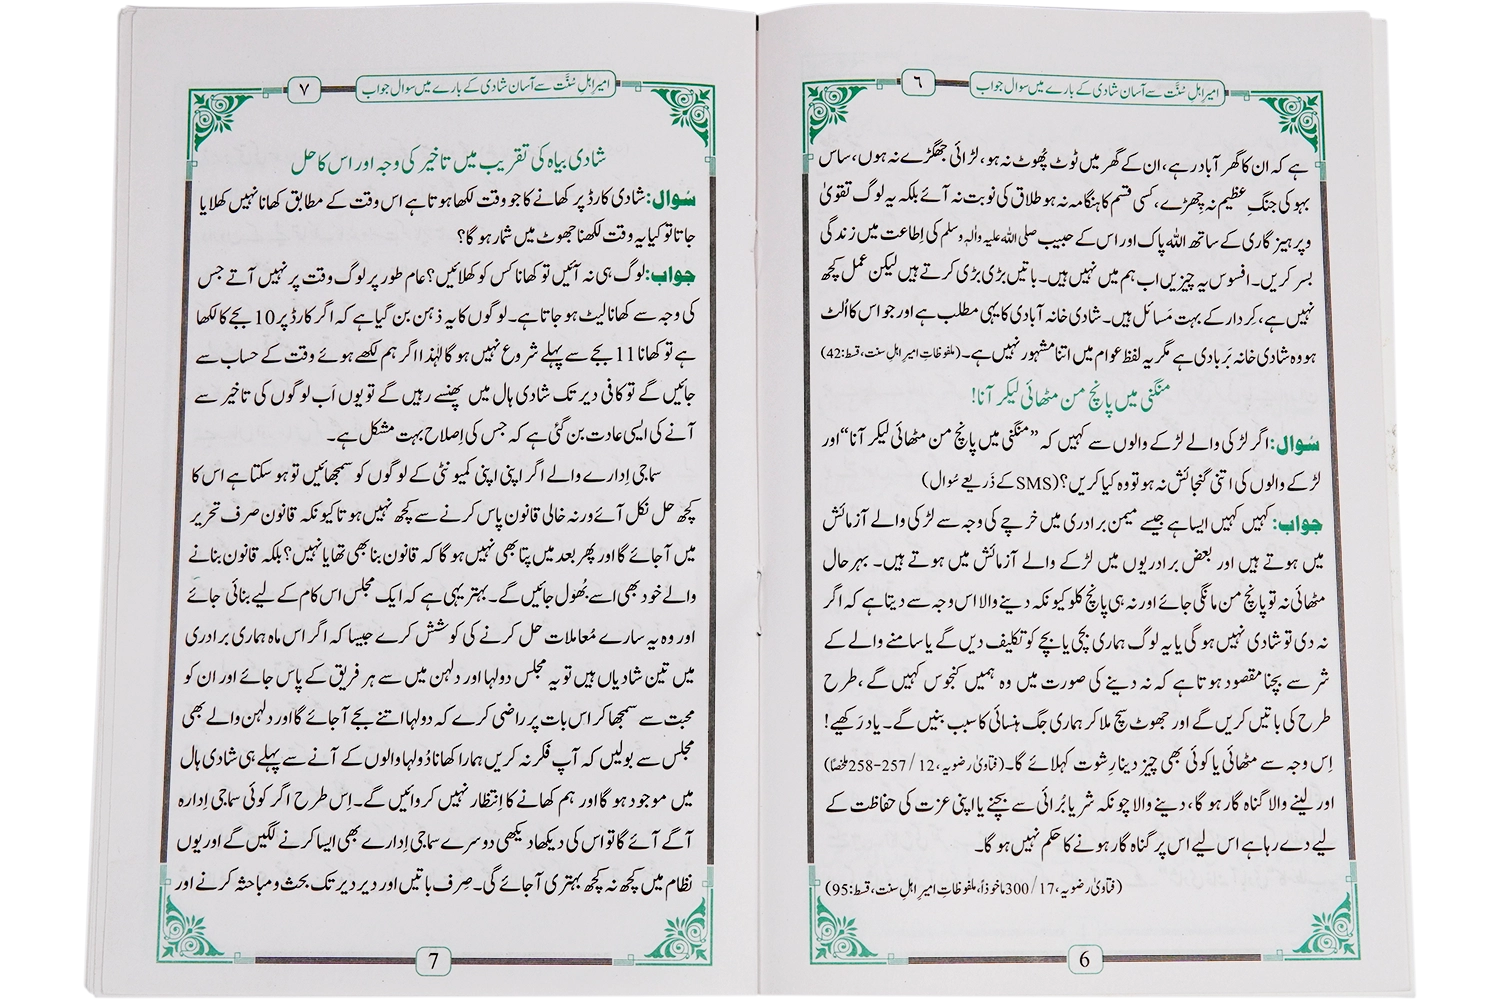 امیرِ اہلِ سُنَّت سے آسان شادی کے بارے میں سوال جواب
٦
ہے کہ ان کا گھر آباد رہے، ان کے گھر میں ٹوٹ پُھوٹ نہ ہو، لڑائی جھگڑے نہ ہوں، ساس
بہو کی جنگِ عظیم نہ چھڑے، کسی قسم کا ہنگامہ نہ ہو طلاق کی نوبت نہ آئے بلکہ یہ لوگ تقویٰ
و پرہیز گاری کے ساتھ اللہ پاک اور اس کے حبیب صلی اللہ علیہ واٰلہٖ وسلم کی اِطاعت میں زندگی
بسر کریں۔ افسوس یہ چیزیں اب ہم میں نہیں ہیں۔ باتیں بڑی بڑی کرتے ہیں لیکن عمل کچھ
نہیں ہے، کِردار کے بہت مَسائل ہیں۔ شادی خانہ آبادی کا یہی مطلب ہے اور جو اس کا اُلٹ
ہو وہ شادی خانہ بَربادی ہے مگر یہ لفظ عوام میں اتنا مشہور نہیں ہے۔ (ملفوظاتِ امیرِ اہلِ سنت، قسط:42)
منگنی میں پانچ من مٹھائی لیکر آنا!
سُوال: اگر لڑکی والے لڑکے والوں سے کہیں کہ ”منگنی میں پانچ من مٹھائی لیکر آنا“ اور
لڑکے والوں کی اتنی گنجائش نہ ہو تو وہ کیا کریں؟ (SMS کے ذَریعے سُوال)
جواب: کہیں کہیں ایسا ہے جیسے میمن برادری میں خرچے کی وجہ سے لڑکی والے آزمائش
میں ہوتے ہیں اور بعض برادریوں میں لڑکے والے آزمائش میں ہوتے ہیں۔ بہرحال
مٹھائی نہ تو پانچ من مانگی جائے اور نہ ہی پانچ کلو کیونکہ دینے والا اس وجہ سے دیتا ہے کہ اگر
نہ دی تو شادی نہیں ہو گی یا یہ لوگ ہماری بچی یا بچے کو تکلیف دیں گے یا سامنے والے کے
شر سے بچنا مقصود ہوتا ہے کہ نہ دینے کی صورت میں وہ ہمیں کنجوس کہیں گے، طرح
طرح کی باتیں کریں گے اور جھوٹ سچ ملا کر ہماری جگ ہنسائی کا سبب بنیں گے۔ یاد رَکھیے!
اِس وجہ سے مٹھائی یا کوئی بھی چیز دینا رِشوت کہلائے گا۔ (فتاویٰ رضویہ، 12/257-258 ملخصًا)
اور لینے والا گناہ گار ہو گا، دینے والا چونکہ شر یا بُرائی سے بچنے یا اپنی عزت کی حفاظت کے
لیے دے رہا ہے اس لیے اس پر گناہ گار ہونے کا حکم نہیں ہو گا۔
(فتاویٰ رضویہ، 17/300 ماخوذاً، ملفوظاتِ امیرِ اہلِ سنت، قسط:95)
6
امیرِ اہلِ سُنَّت سے آسان شادی کے بارے میں سوال جواب
٧
شادی بیاہ کی تقریب میں تاخیر کی وجہ اور اس کا حل
سُوال: شادی کارڈ پر کھانے کا جو وقت لکھا ہوتا ہے اس وقت کے مطابق کھانا نہیں کھلایا
جاتا تو کیا یہ وقت لکھنا جھوٹ میں شمار ہو گا؟
جواب: لوگ ہی نہ آئیں تو کھانا کس کو کھلائیں؟ عام طور پر لوگ وقت پر نہیں آتے جس
کی وجہ سے کھانا لیٹ ہو جاتا ہے۔ لوگوں کا یہ ذہن بن گیا ہے کہ اگر کارڈ پر 10 بجے کا لکھا
ہے تو کھانا 11 بجے سے پہلے شروع نہیں ہو گا لہٰذا اگر ہم لکھے ہوئے وقت کے حساب سے
جائیں گے تو کافی دیر تک شادی ہال میں پھنسے رہیں گے تو یوں اَب لوگوں کی تاخیر سے
آنے کی ایسی عادت بن گئی ہے کہ جس کی اِصلاح بہت مشکل ہے۔
سماجی اِدارے والے اگر اپنی اپنی کمیونٹی کے لوگوں کو سمجھائیں تو ہو سکتا ہے اس کا
کچھ حل نکل آئے ورنہ خالی قانون پاس کرنے سے کچھ نہیں ہوتا کیونکہ قانون صرف تحریر
میں آجائے گا اور پھر بعد میں پتا بھی نہیں ہو گا کہ قانون بنا بھی تھا یا نہیں؟ بلکہ قانون بنانے
والے خود بھی اسے بُھول جائیں گے۔ بہتر یہی ہے کہ ایک مجلس اس کام کے لیے بنائی جائے
اور وہ یہ سارے مُعاملات حل کرنے کی کوشش کرے جیسا کہ اگر اس ماہ ہماری برادری
میں تین شادیاں ہیں تو یہ مجلس دولہا اور دلہن میں سے ہر فریق کے پاس جائے اور ان کو
محبت سے سمجھا کر اس بات پر راضی کرے کہ دولہا اتنے بجے آجائے گا اور دلہن والے بھی
مجلس سے بولیں کہ آپ فکر نہ کریں ہمارا کھانا دُولہا والوں کے آنے سے پہلے ہی شادی ہال
میں موجود ہو گا اور ہم کھانے کا اِنتظار نہیں کروائیں گے۔ اِس طرح اگر کوئی سماجی اِدارہ
آگے آئے گا تو اس کی دیکھا دیکھی دوسرے سماجی اِدارے بھی ایسا کرنے لگیں گے اور یوں
نظام میں کچھ نہ کچھ بہتری آجائے گی۔ صِرف باتیں اور دیر دیر تک بحث و مباحثہ کرنے اور
7